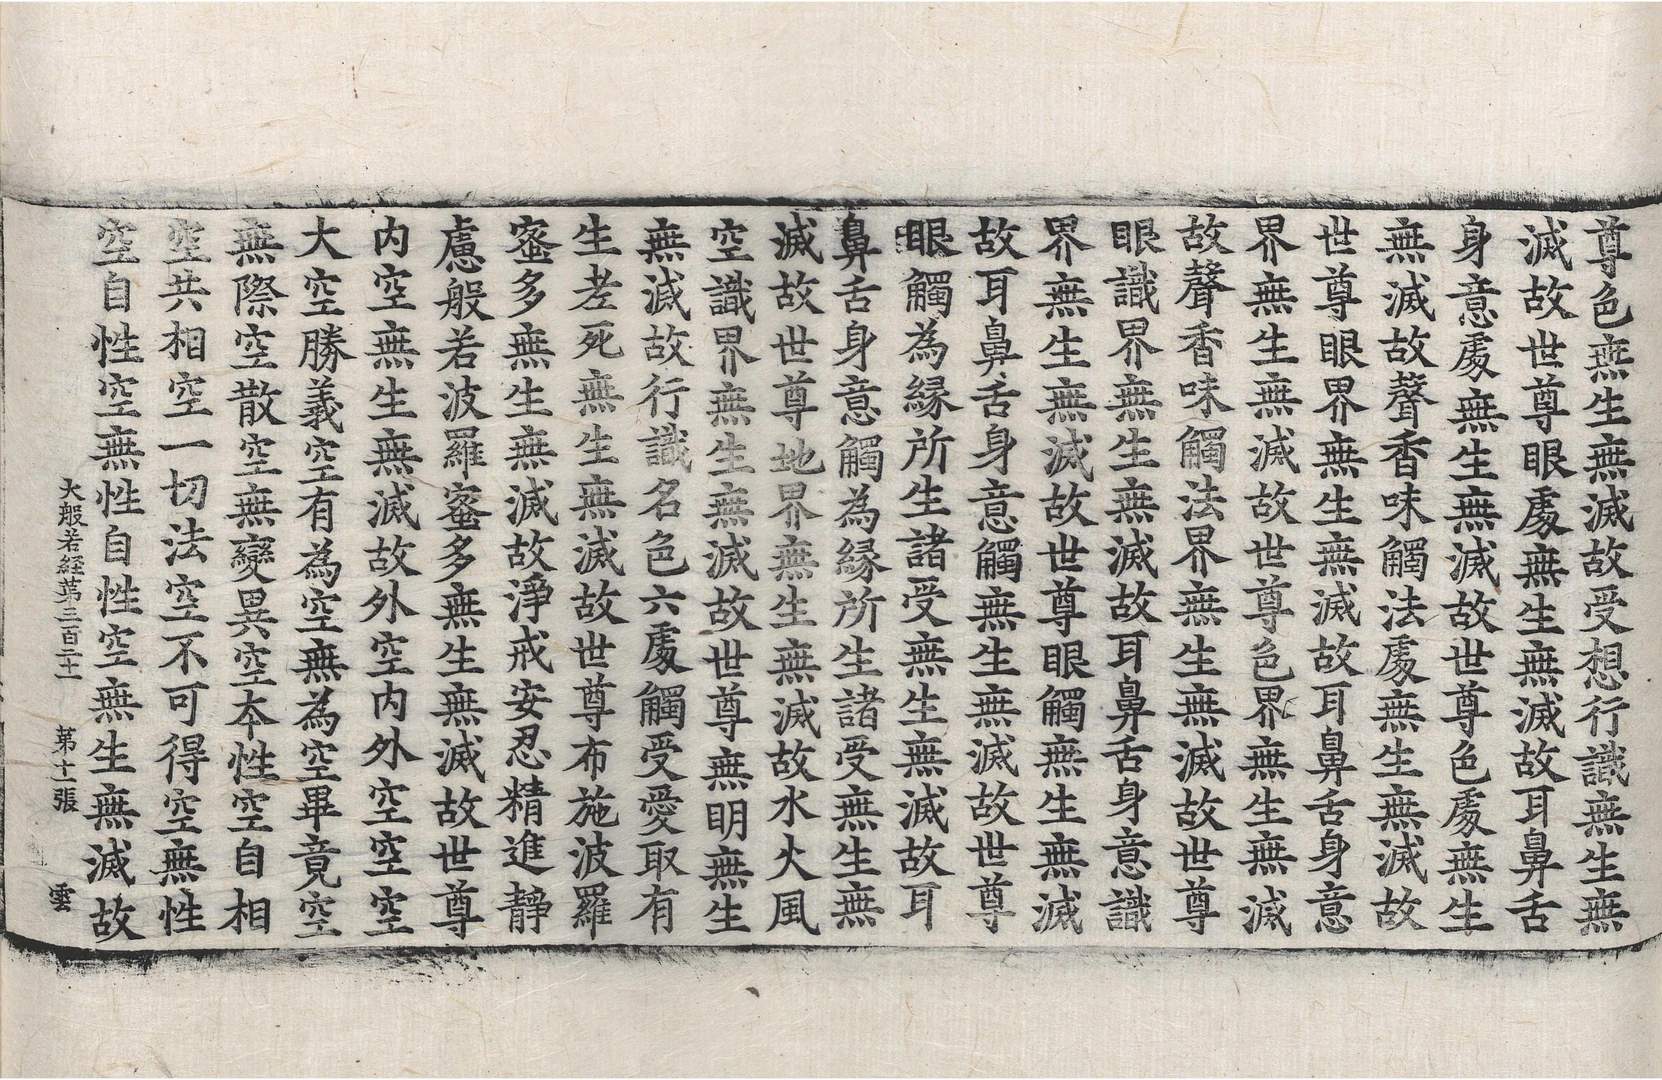 尊色無生無滅故受想行識無生無
滅故世尊眼處無生無滅故耳鼻舌
身意處無生無滅故世尊色處無生
無滅故聲香味觸法處無生無滅故
世尊眼界無生無滅故耳鼻舌身意
界無生無滅故世尊色界無生無滅
故聲香味觸法界無生無滅故世尊
眼識界無生無滅故耳鼻舌身意識
界無生無滅故世尊眼觸無生無滅
故耳鼻舌身意觸無生無滅故世尊
眼觸為縁所生諸受無生無滅故耳
鼻舌身意觸為縁所生諸受無生無
滅故世尊地界無生無滅故水火風
空識界無生無滅故世尊無明無生
無滅故行識名色六處觸受愛取有
生老死無生無滅故世尊布施波羅
蜜多無生無滅故淨戒安忍精進靜
慮般若波羅蜜多無生無滅故世尊
内空無生無滅故外空内外空空空
大空勝義空有為空無為空畢竟空
無際空散空無變異空夲性空自相
空共相空一切法空不可得空無性
空自性空無性自性空無生無滅故
大般若經第三百二十一 第十一張 雲